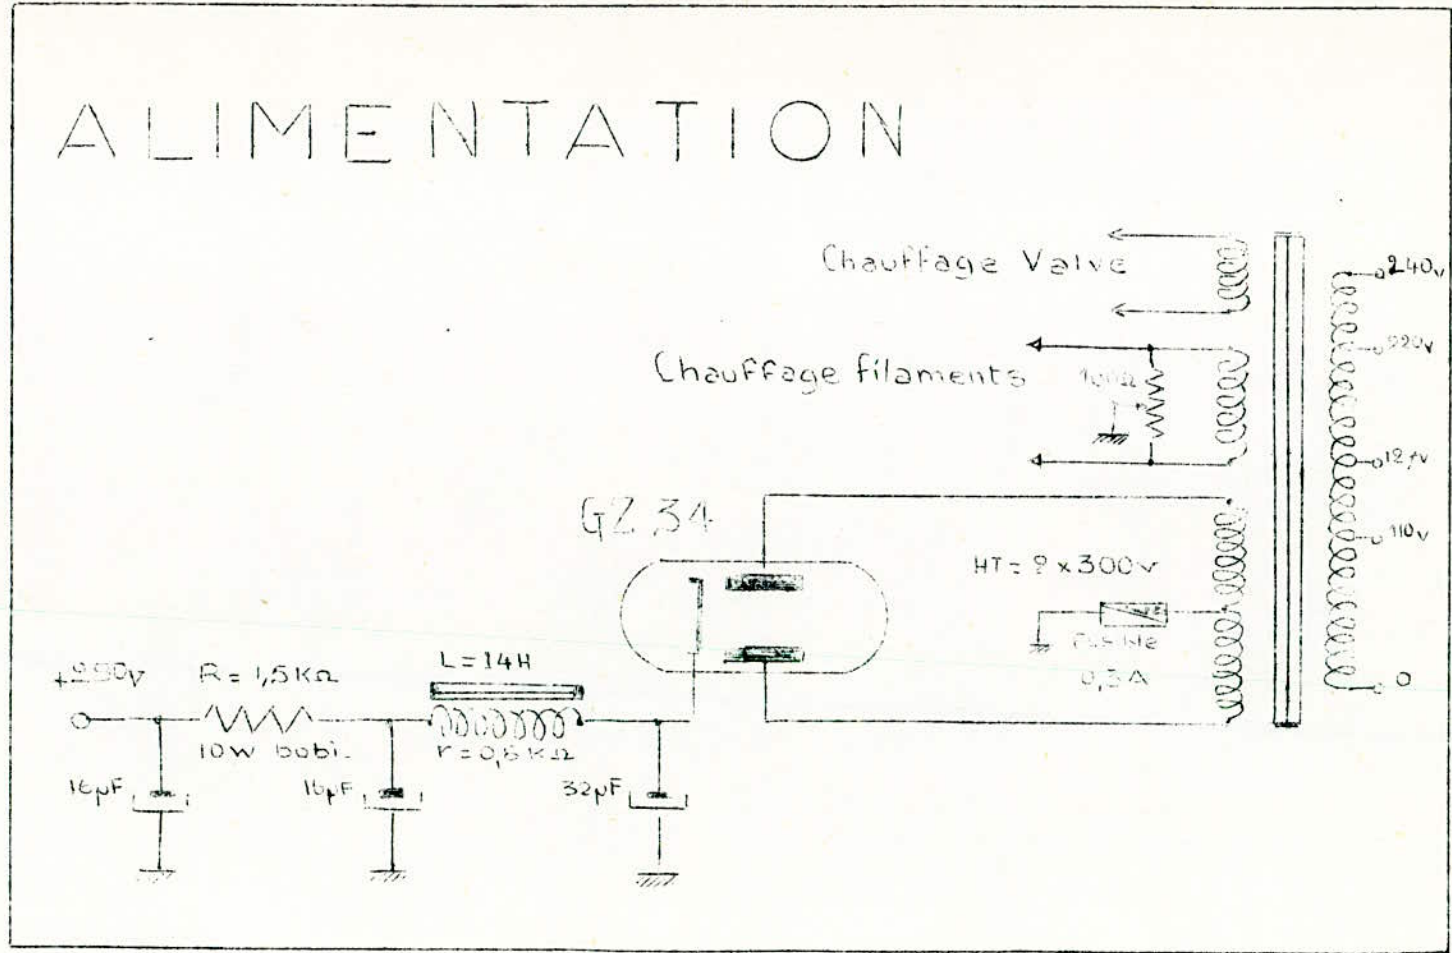 ALIMENTATION
Chauffage Valve
Chauffage filaments
100Ω
240v
220v
110v
0
GZ 34
HT = 2 x 300v
Fusible
0,3A
R = 1,5KΩ
10W bobi.
L = 14H
16µF
16µF
32µF